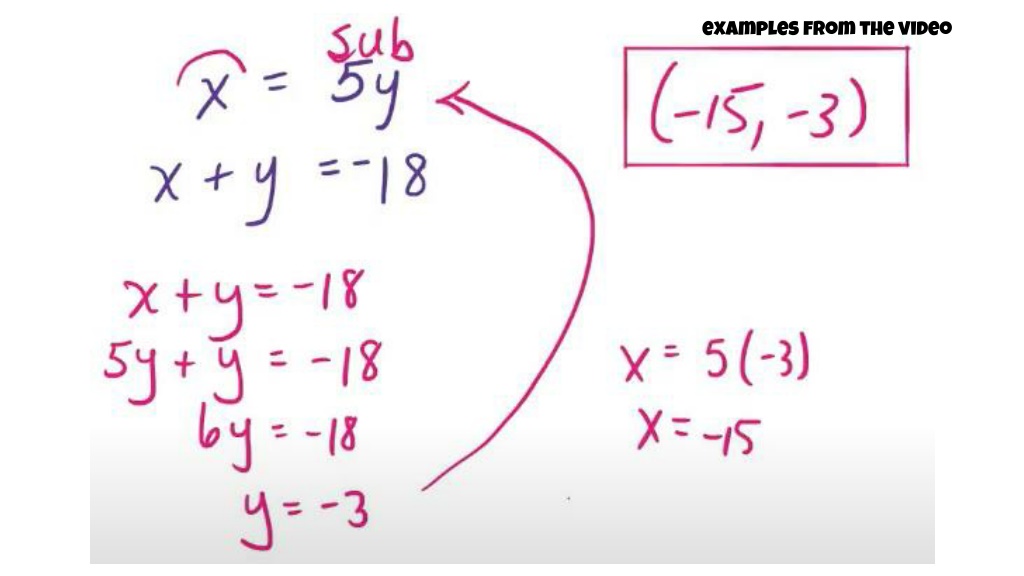 examples from the video
sub
x = 5y
x + y = -18
(-15, -3)
x + y = -18
5y + y = -18
6y = -18
y = -3
x = 5(-3)
x = -15